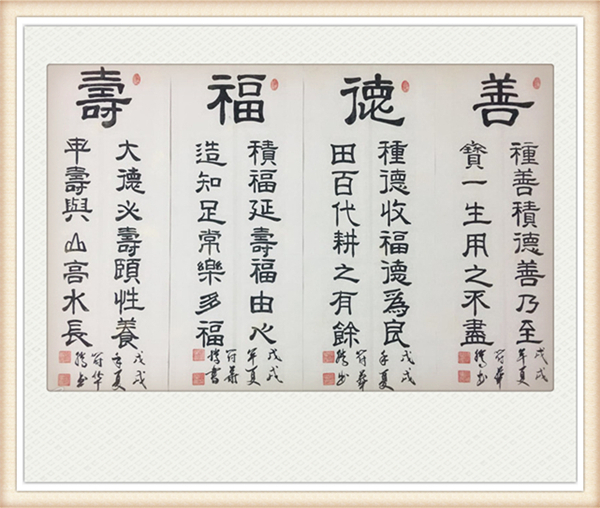 善
種善積德善乃至
寶一生用之不盡
戊戌年夏
德
種德收福德為良
田百代耕之有餘
戊戌年夏
福
積福延壽福由心
造知足常樂多福
戊戌年夏
壽
大德必壽頤性養
年壽與山高水長
戊戌年夏